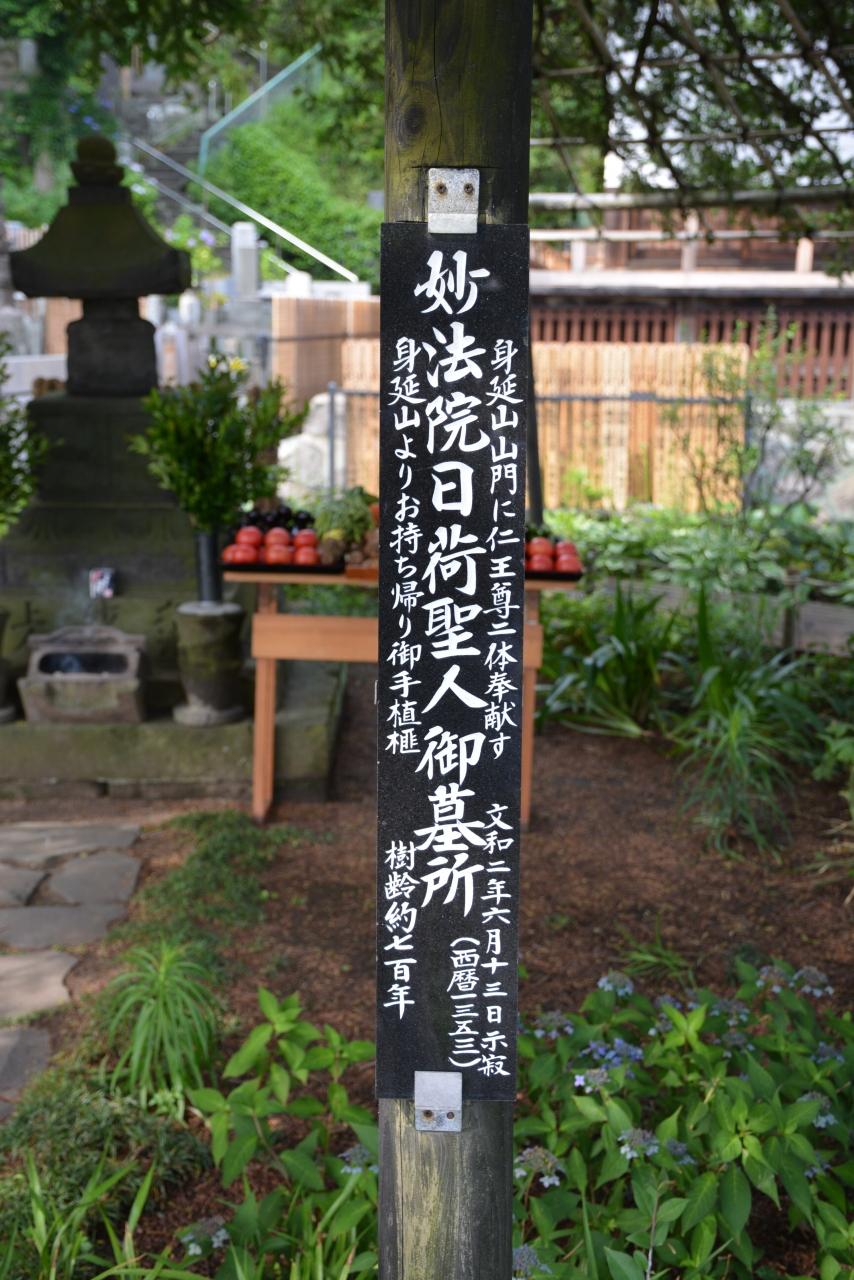 身延山山門に仁王尊二体奉献す 文和二年六月十三日示寂
(西暦一三五三)
妙法院日荷聖人御墓所
身延山よりお持ち帰り御手植榧 樹齢約七百年